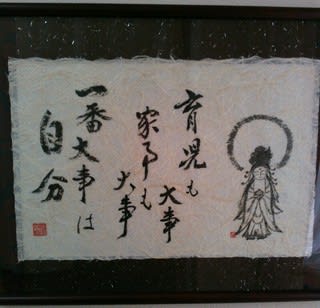 育児も
大事
家事も
大事
一番大事は
自分